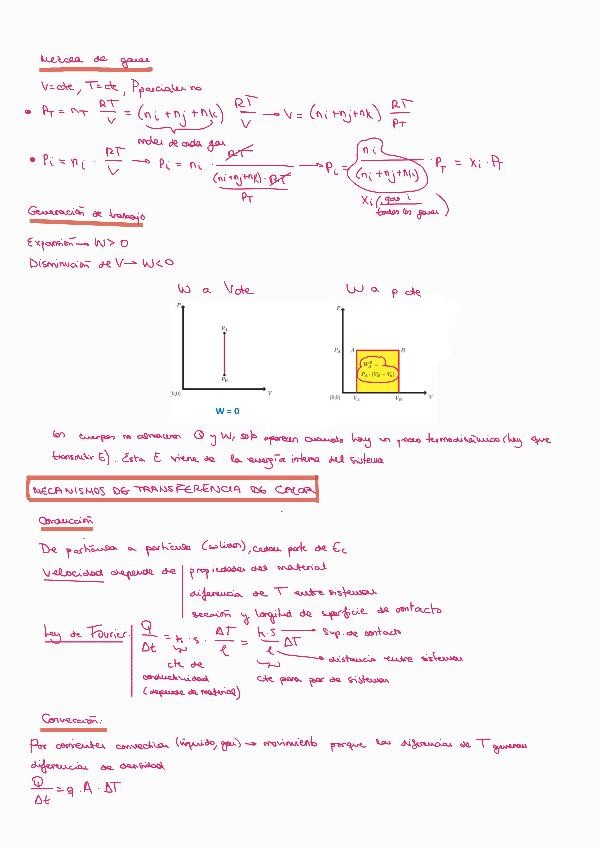 Mezcla de gases
V=cte, T=cte, Pparciales no
• P_T = n_T RT/V = (n_i+n_j+n_k) RT/V → V = (n_i+n_j+n_k) RT/P_T
moles de cada gas
• P_i = n_i · RT/V → P_i = n_i · RT/((n_i+n_j+n_k)·RT/P_T) → P_i = n_i/(n_i+n_j+n_k) · P_T = x_i · P_T
x_i (gas i/todos los gases)
Generación de trabajo
Expansión → W > 0
Disminución de V → W < 0
W a V cte
W a p cte
P
P_A
P_B
(0,0)
V
W = 0
P
P_A
A
B
W_A^B =
P_A·(V_B − V_A)
(0,0)
V_A
V_B
V
Los cuerpos no almacenan Q y W, solo aparecen cuando hay un proceso termodinámico (hay que
transmitir E). Esta E viene de la energía interna del sistema
MECANISMOS DE TRANSFERENCIA DE CALOR
Conducción
De partícula a partícula (sólidos), ceden parte de E_c
Velocidad depende de
propiedades del material
diferencia de T entre sistemas
sección y longitud de superficie de contacto
Ley de Fourier:
Q/Δt = k · S · ΔT/ℓ = k·S/ℓ ΔT
Sup. de contacto
distancia entre sistemas
cte de
conductividad
(depende de material)
cte para par de sistemas
Convección:
Por corrientes convectivas (líquido, gas) → movimiento porque las diferencias de T generan
diferencias de densidad
Q/Δt = q · A · ΔT